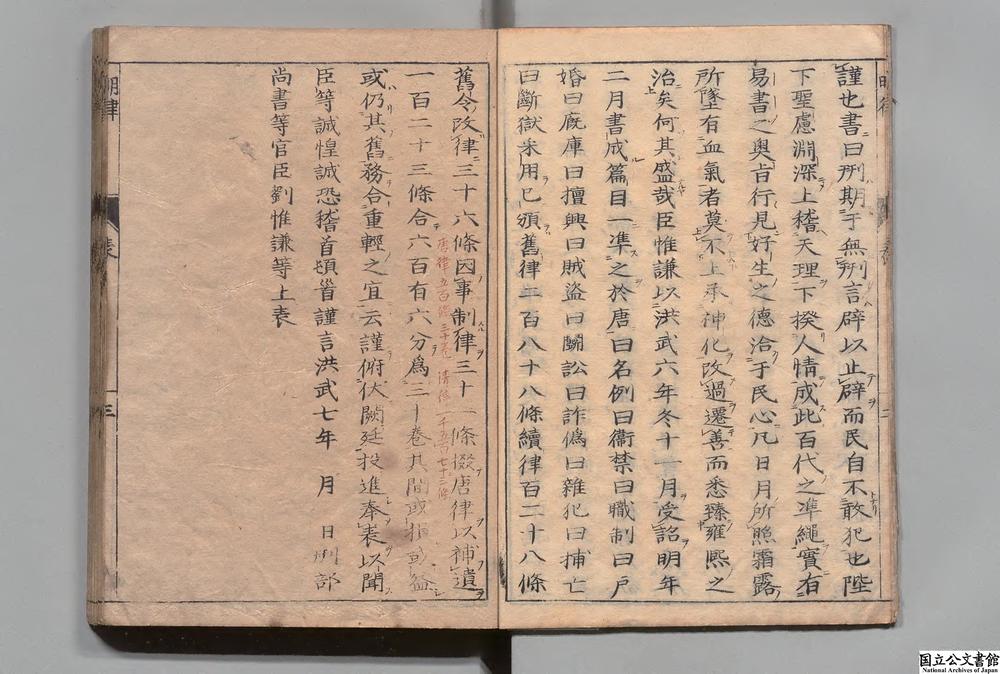 謹也書曰刑期于無刑言辟以止辟而民自不敢犯也陛
下聖慮淵深上稽天理下揆人情成此百代之準繩實有
易書之奥旨行見好生之德洽于民心凡日月所照霜露
所墜有血氣者莫不上承神化改過遷善而悉臻雍熙之
治矣何其盛哉臣惟謙以洪武六年冬十一月受詔明年
二月書成篇目一準之於唐曰名例曰衞禁曰職制曰戸
婚曰厩庫曰擅興曰賊盗曰鬭訟曰詐僞曰雜犯曰捕亡
曰斷獄采用已頒舊律二百八十八條續律百二十八條
舊令改律三十六條因事制律三十一條掇唐律以補遺
一百二十三條合六百有六分爲三十卷其間或損或益
唐律五百條三十卷 清律一千五百七十三條
或仍其舊務合重輕之宜云謹俯伏闕廷投進奉表以聞
臣等誠惶誠恐稽首頓首謹言洪武七年 月 日刑部
尚書等官臣劉惟謙等上表
明律 表 三
国立公文書館
National Archives of Japan